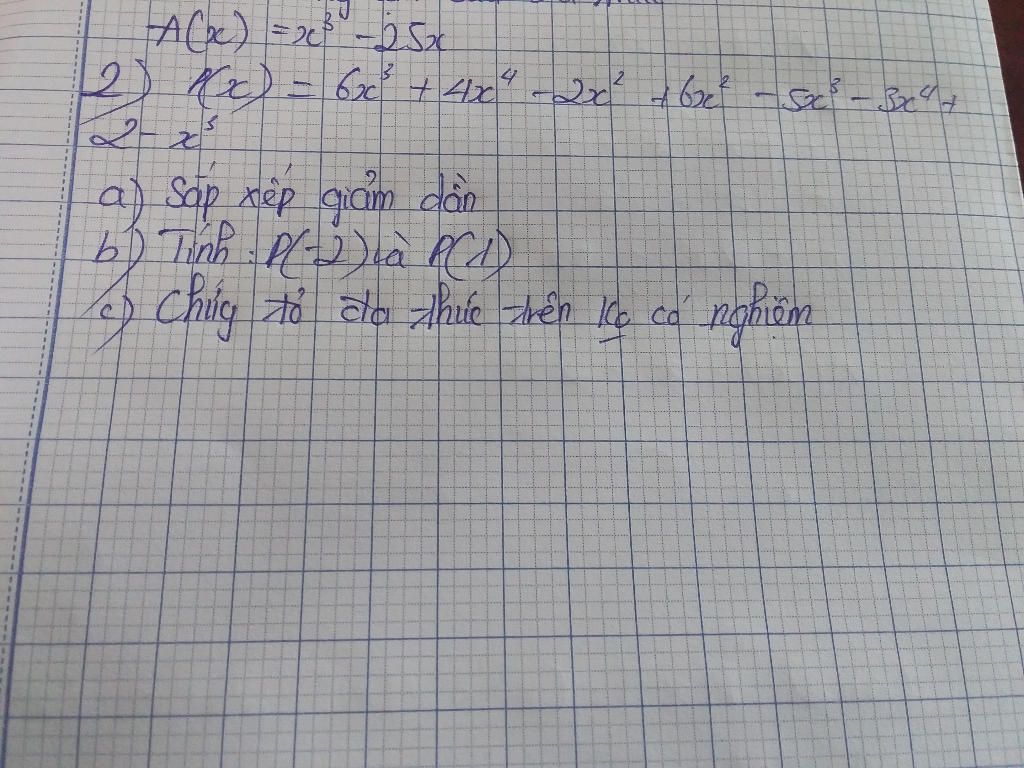 A(x) = x³ - 25x
2) P(x) = 6x³ + 4x⁴ - 2x² + 6x² - 5x³ - 3x⁴ +
2 - x³
a) Sắp xếp giảm dần
b) Tính : P(-2) và P(1)
c) Chứg tỏ đa thức trên kọ có nghiệm